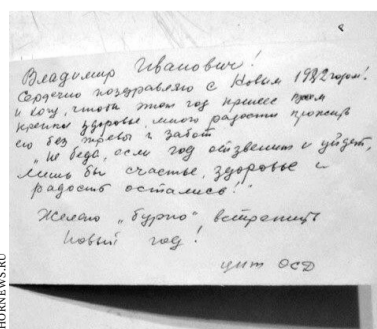 Владимир Иванович!
Сердечно поздравляю с Новым 1982 годом!
и хочу, чтобы этот год принес Вам
крепкое здоровье, много радости прожить
его без тревог и забот.
„Не беда, если год отзвенит и уйдет,
лишь бы счастье, здоровье и
радость остались!"
Желаю „бурно" встретить
Новый год!
ОСД
HORNEWS.RU